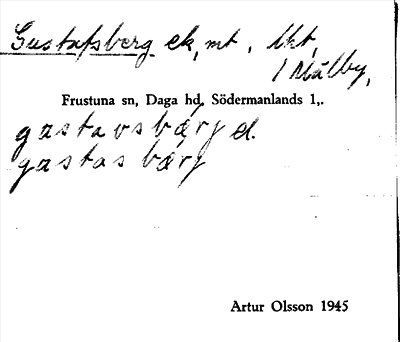 Gustafsberg ek, mt, lkt,
/ Målby,
Frustuna sn, Daga hd, Södermanlands l,.
gastavsbærj el.
gastasbærj
Artur Olsson 1945